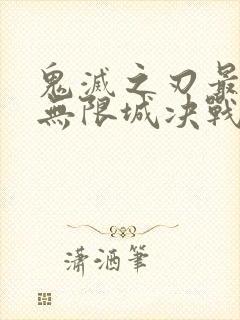 鬼滅之刃最
無限城決戰
瀟洒筆